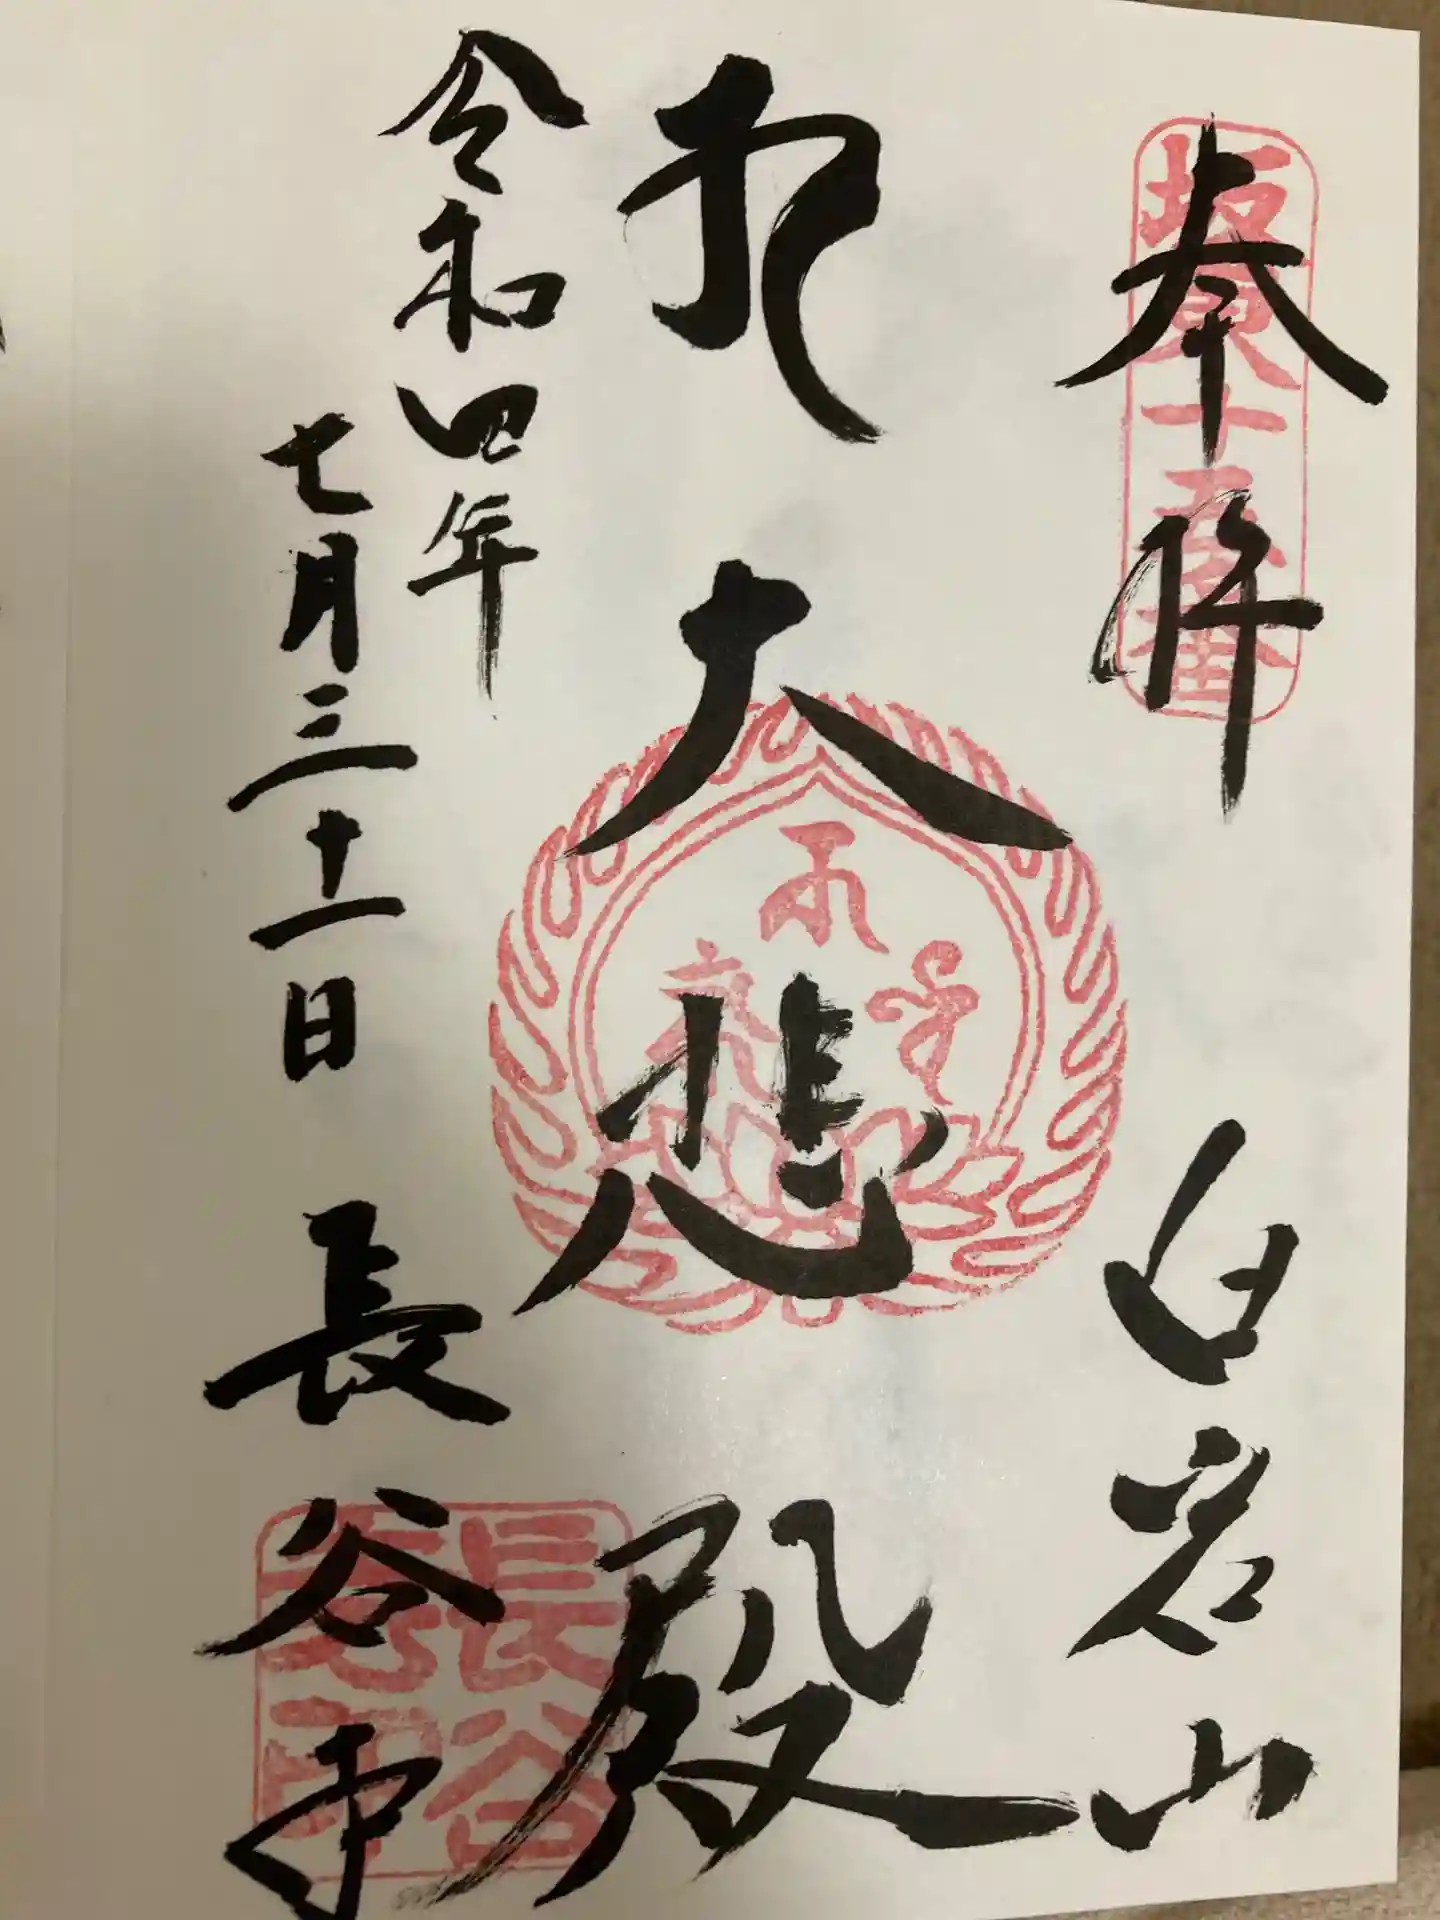 奉拝
坂東十五番
白岩山
大悲殿
令和四年
七月三十一日
長谷寺
長谷寺印